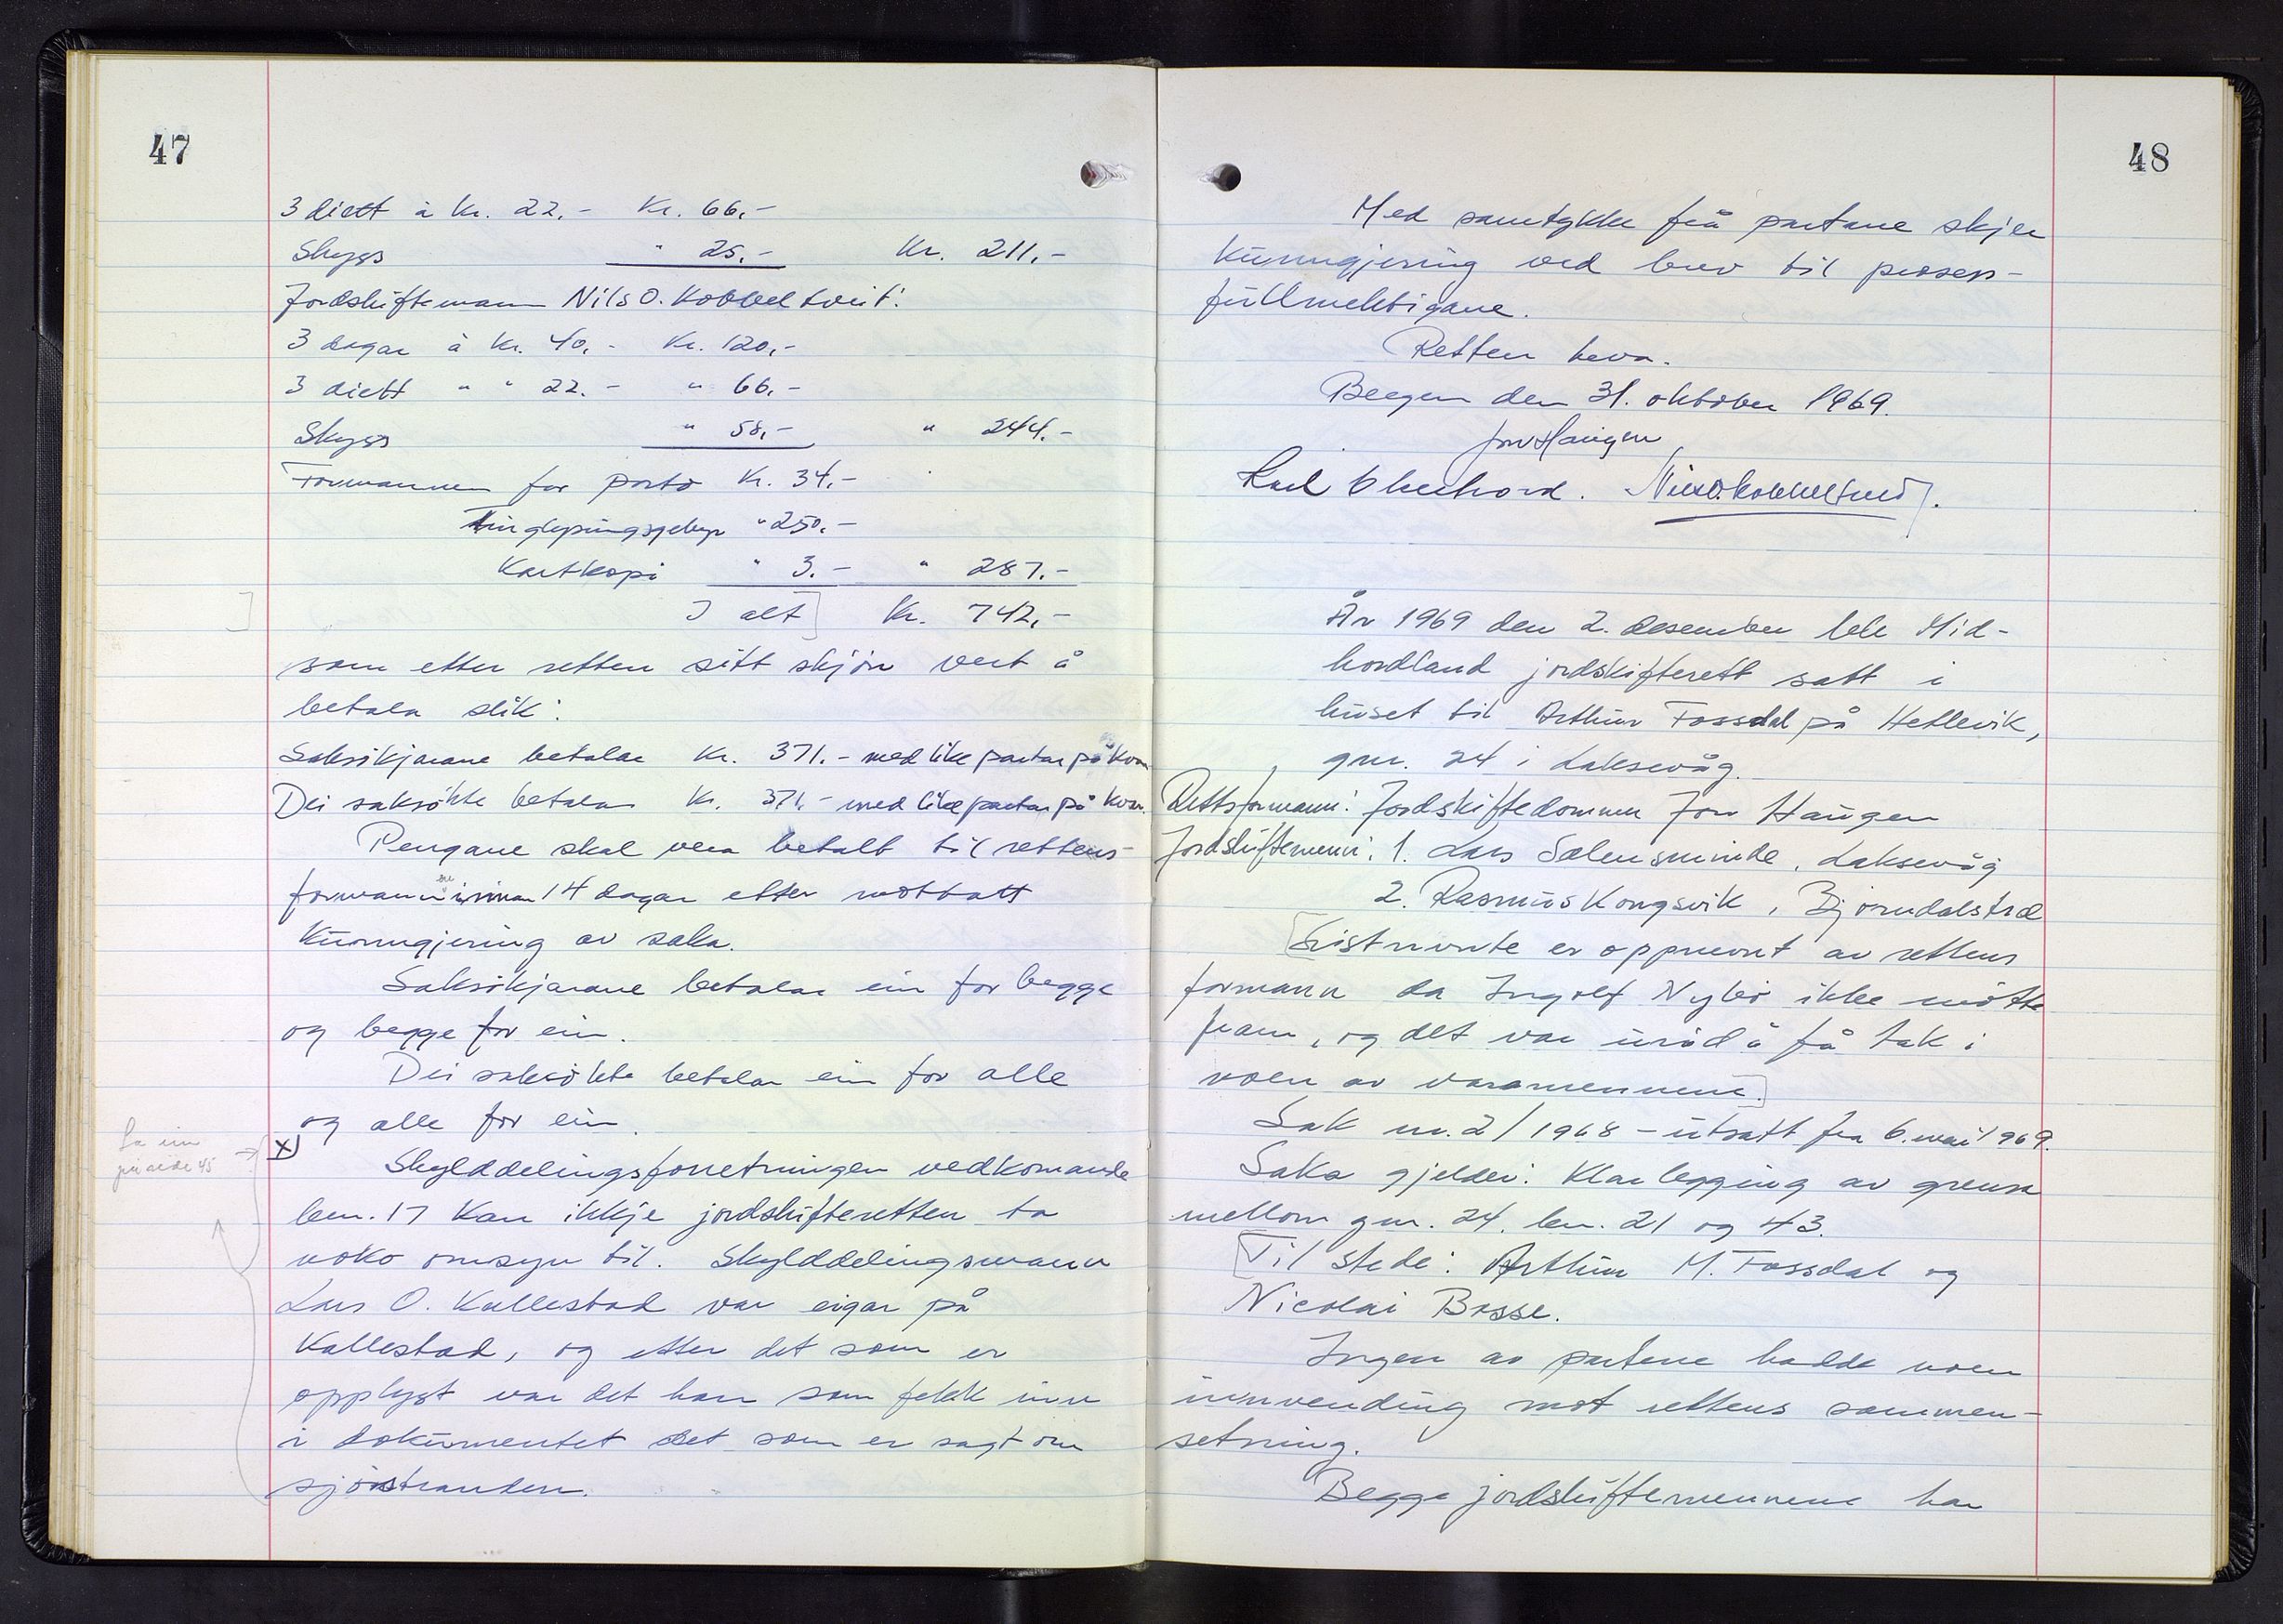 47
3 diett à kr. 22,- Kr. 66,-
Skyss " 25,- Kr. 211,-
Jordskiftemann Nils O. Kobbeltveit:
3 dagar à kr. 40,- Kr. 120,-
3 diett " " 22.- " 66,-
Skyss " 58,- " 244.-
Formannen for porto Kr. 34,-
Tinglysingsgebyr " 250,-
Kartkopi " 3.- " 287.-
I alt] Kr. 742,-
som etter retten sitt skjön vert å
betala slik:
Saksökjarane betalar kr. 371.- med like partar på kvar
Dei saksökte betalar kr. 371.- med like partar på kvar.
Pengane skal vera betalt til rettens-
formannen innan 14 dagar etter mottatt
kunngjering av saka.
Saksökjarane betalar ein for begge
og begge for ein.
Dei saksökte betalar ein for alle
og alle for ein.
x)
Sa inn
på side 45
Skylddelingsforretningen vedkomande
bnr. 17 kan ikkje jordskifteretten ta
noko omsyn til. Skylddelingsmann
Lars O. Kallestad var eigar på
Kallestad, og etter det som er
opplyst var det han som fekk inn
i dokumentet det som er sagt om
sjöstranden.
48
Med samtykke frå partane skjer
kunngjering ved brev til prosess-
fullmektigane.
Retten heva.
Bergen den 31. oktober 1969.
Jon Haugen
Karl Nils O. Kobbeltveit.
År 1969 den 2. desember ble Mid-
hordland jordskifterett satt i
huset til Arthur Fossdal på Hetlevik,
gnr. 24 i Laksevåg.
Rettsformann: Jordskiftedommer Jon Haugen
Jordskiftemenn: 1. Lars Sælensminde, Laksevåg
2. Rasmus Kongsvik, Björndalstræ
[Sistnevnte er oppnevnt av rettens
formann da Ingolf Nybö ikke møtte
fram, og det var uråd å få tak i
noen av varamennene.]
Sak nr. 2/1968 - utsatt fra 6. mai 1969.
Saka gjelder: Klarlegging av grensa
mellom gnr. 24, bnr. 21 og 43.
[Til stede: Arthur M. Fossdal og
Nicolai Bosse.
Ingen av partene hadde noen
innvending mot rettens sammen-
setning.
Begge jordskiftemennene har